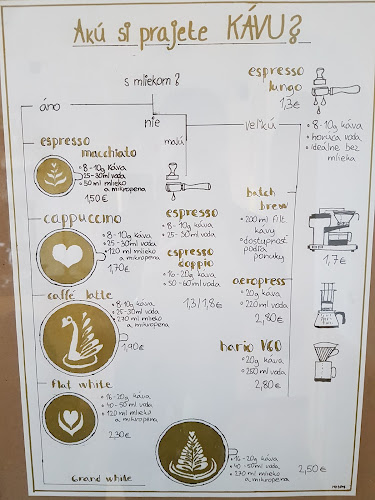 Akú si prajete KÁVU?
s mliekom?
áno
nie
malú
veľkú
espresso
macchiato
• 8-10g káva
• 25-30ml voda
• 50ml mlieko
a mikropena
1,50€
cappuccino
• 8-10g káva
• 25-30ml voda
• 120 ml mlieko
a mikropena
1,70€
caffé latte
• 8-10g káva
• 25-30ml voda
• 270 ml mlieko
a mikropena
1,90€
flat white
• 16-20g káva
• 40-50ml voda
• 120ml mlieko
a mikropena
2,30€
Grand white
• 16-20g káva
• 40-50ml voda
• 270 ml mlieko
a mikropena
2,50€
espresso
• 8-10g káva
• 25-30ml voda
espresso
doppio
• 16-20g káva
• 50-60ml voda
1,3/1,8€
espresso
lungo
1,3€
• 8-10g káva
• horúca voda
• ideálne bez
mlieka
batch
brew
• 200ml filt.
kávy
• dostupnosť
podľa
ponuky
1,7€
aeropress
• 20g káva
• 220ml voda
2,80€
hario V60
• 20g káva
• 260ml voda
2,80€